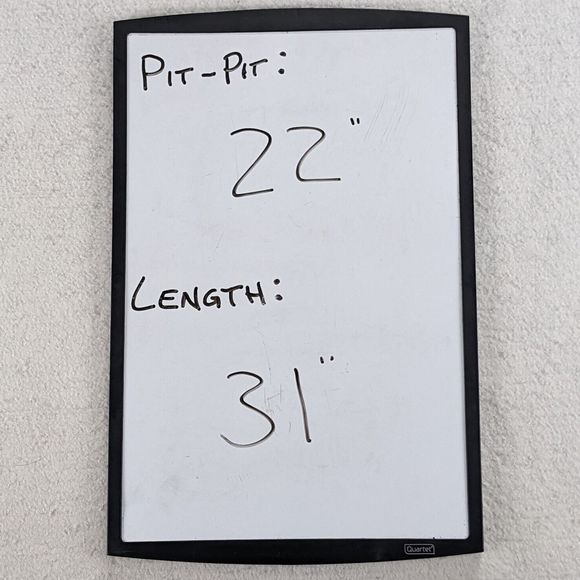 PIT-PIT:
22"
LENGTH:
31"
Quartet